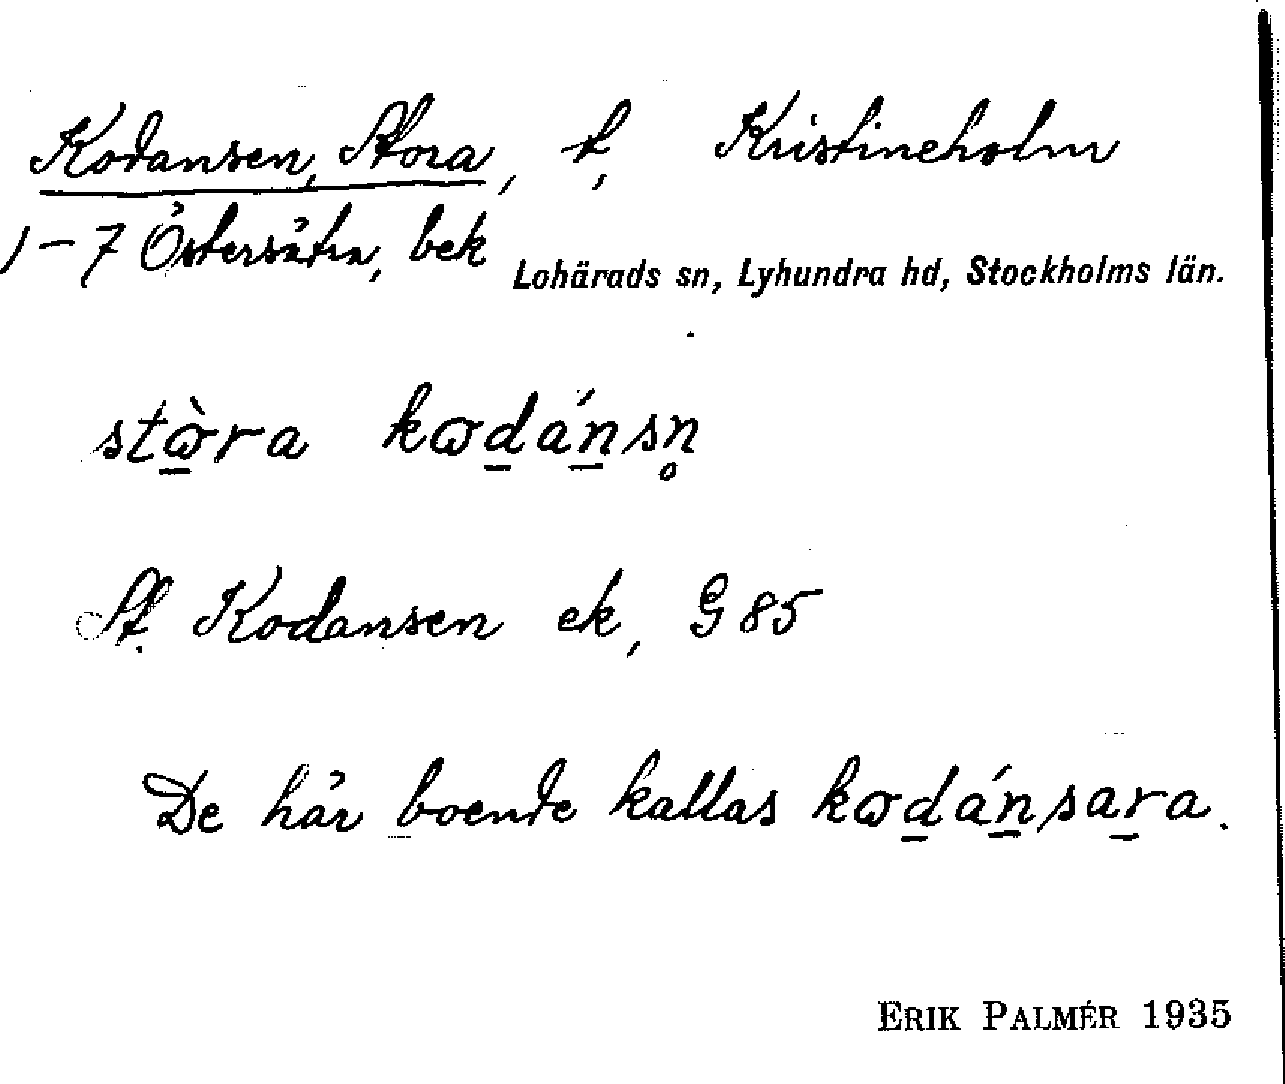 Kodansen, Stora, t, Kristineholm
1–7 Östersätra, bek
Lohärads sn, Lyhundra hd, Stockholms län.
stɷ̠̀ra kɷd̠án̠sn̥
St. Kodansen ek, G 85
De här boende kallas kɷd̠án̠sar̠a.
ERIK PALMÉR 1935